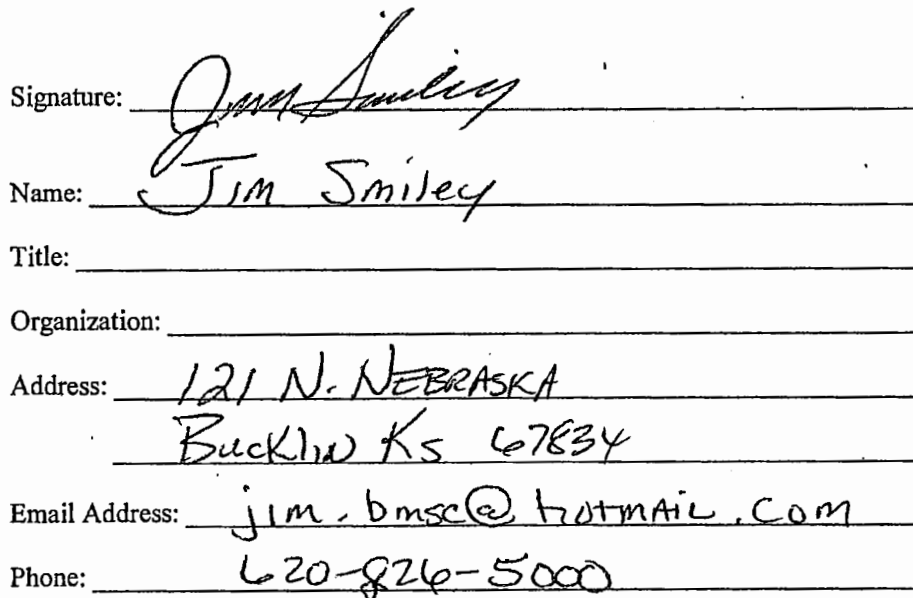 Signature: Jim Smiley
Name: Jim Smiley
Title:
Organization:
Address: 121 N. NEBRASKA
Bucklin Ks 67834
Email Address: jim.bmsc@hotmail.com
Phone: 620-826-5000